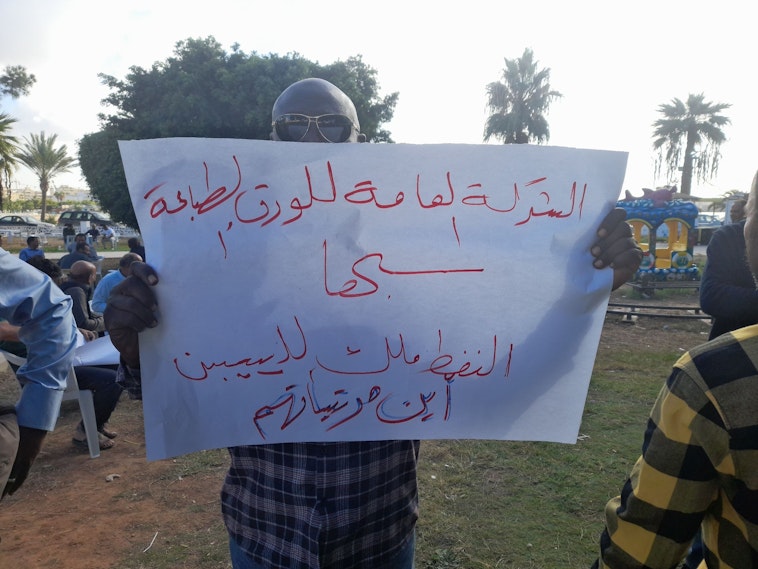 الشركة العامة للورق والطباعة
سبها
النفط ملك لليبيين
أين مرتباتهم